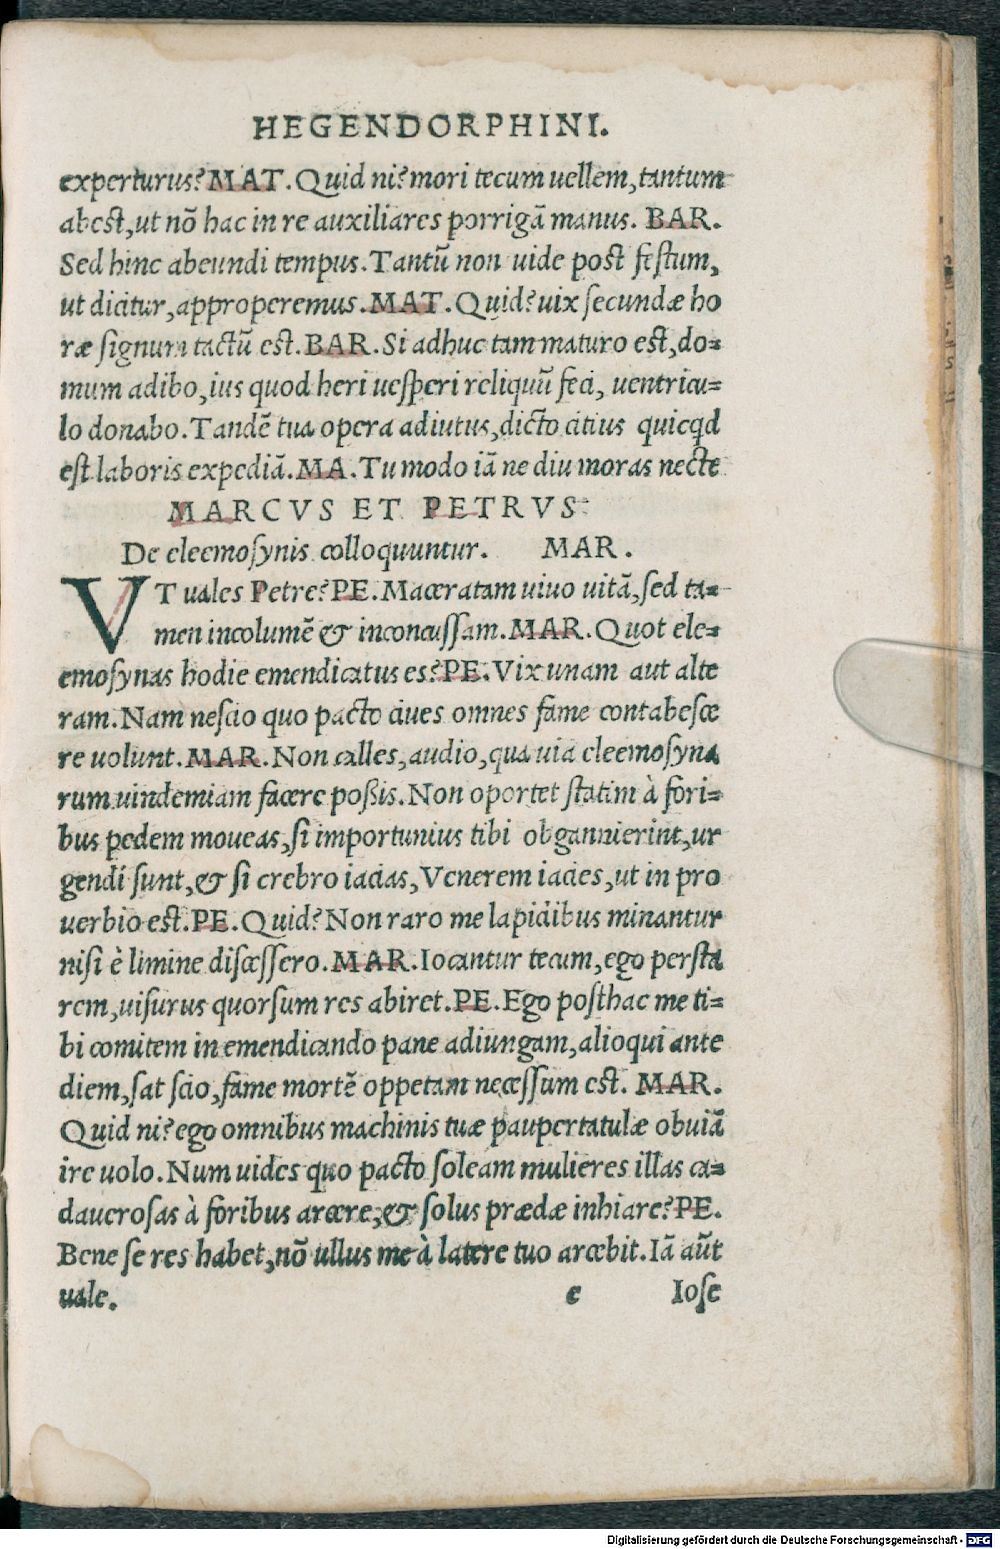 HEGENDORPHINI.
experturus? MAT. Quid ni? mori tecum uellem, tantum
abest, ut nõ hac in re auxiliares porrigã manus. BAR.
Sed hinc abeundi tempus. Tantũ non uide post festum,
ut dicitur, approperemus. MAT. Quid? uix secundæ ho
ræ signum tactũ est. BAR. Si adhuc tam maturo est, do=
mum adibo, ius quod heri uesperi reliquũ feci, uentricu=
lo donabo. Tandẽ tua opera adiutus, dicto citius quicqd
est laboris expediã. MA. Tu modo iã ne diu moras necte
MARCVS ET PETRVS
De eleemosynis colloquuntur. MAR.
VT uales Petre? PE. Maceratam uiuo uitã, sed ta=
men incolumẽ & inconcussam. MAR. Quot ele=
emosynas hodie emendicatus es? PE. Vix unam aut alte
ram. Nam nescio quo pacto ciues omnes fame contabesce
re uolunt. MAR. Non calles, audio, qua uia eleemosyna
rum uindemiam facere possis. Non oportet statim à fori=
bus pedem moueas, si importunius tibi obgannierint, ur
gendi sunt, & si crebro iacias, Venerem iacies, ut in pro
uerbio est. PE. Quid? Non raro me lapidibus minantur
nisi è limine discessero. MAR. Iocantur tecum, ego persta
rem, uisurus quorsum res abiret. PE. Ego posthac me ti=
bi comitem in emendicando pane adiungam, alioqui ante
diem, sat scio, fame mortẽ oppetam necessum est. MAR.
Quid ni? ego omnibus machinis tuæ paupertatulæ obuiã
ire uolo. Num uides quo pacto soleam mulieres illas ca=
dauerosas à foribus arcere, & solus prædæ inhiare? PE.
Bene se res habet, nõ ullus me à latere tuo arcebit. Iã aũt
uale. e Iose
Digitalisierung gefördert durch die Deutsche Forschungsgemeinschaft - DFG